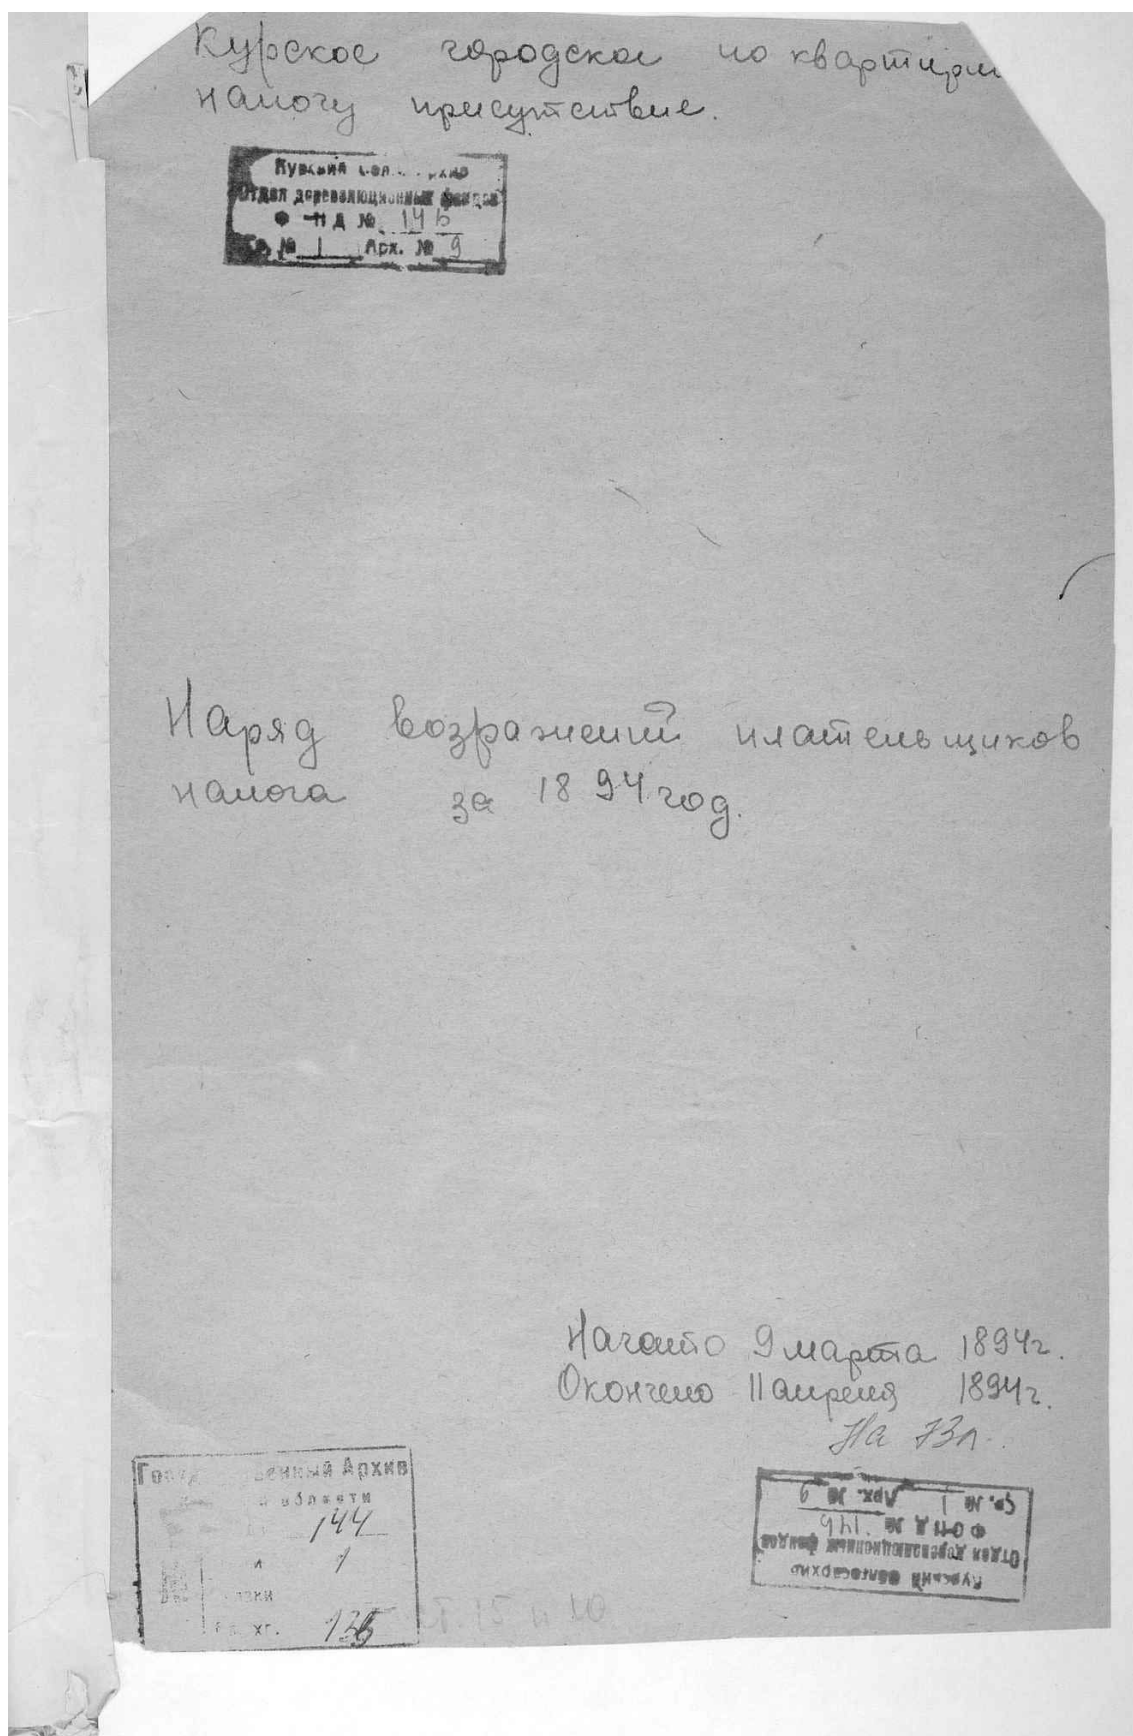 Курское городское по квартирн
налогу присутствие.
Курский
Отдел дореволюционных фондов
ФОНД № 146
Св. № 1 Арх. № 9
Наряд возражений плательщиков
налога за 1894 год.
Начато 9 марта 1894 г.
Окончено 11 апреля 1894 г.
На 73 л.
Архив
области
144
1
Курский Облгосархив
Отдел дореволюционных фондов
ФОНД № 146
Св. № 1 Арх. № 9